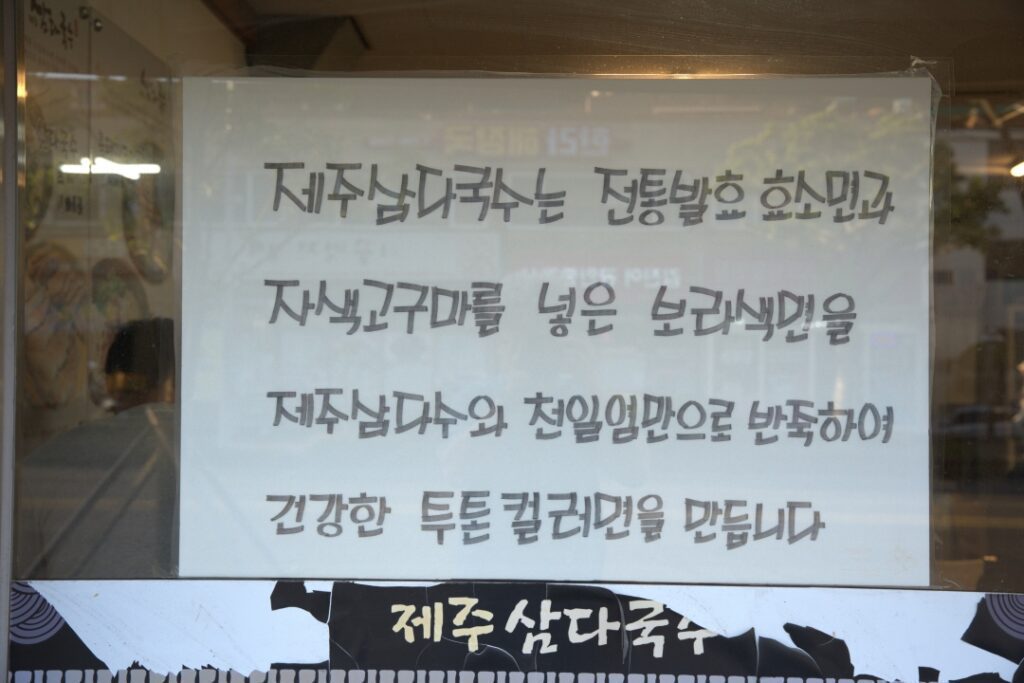 제주삼다국수는 전통발효 효소면과
자색고구마를 넣은 보라색면을
제주삼다수와 천일염만으로 반죽하여
건강한 투톤컬러면을 만듭니다
제주삼다국수